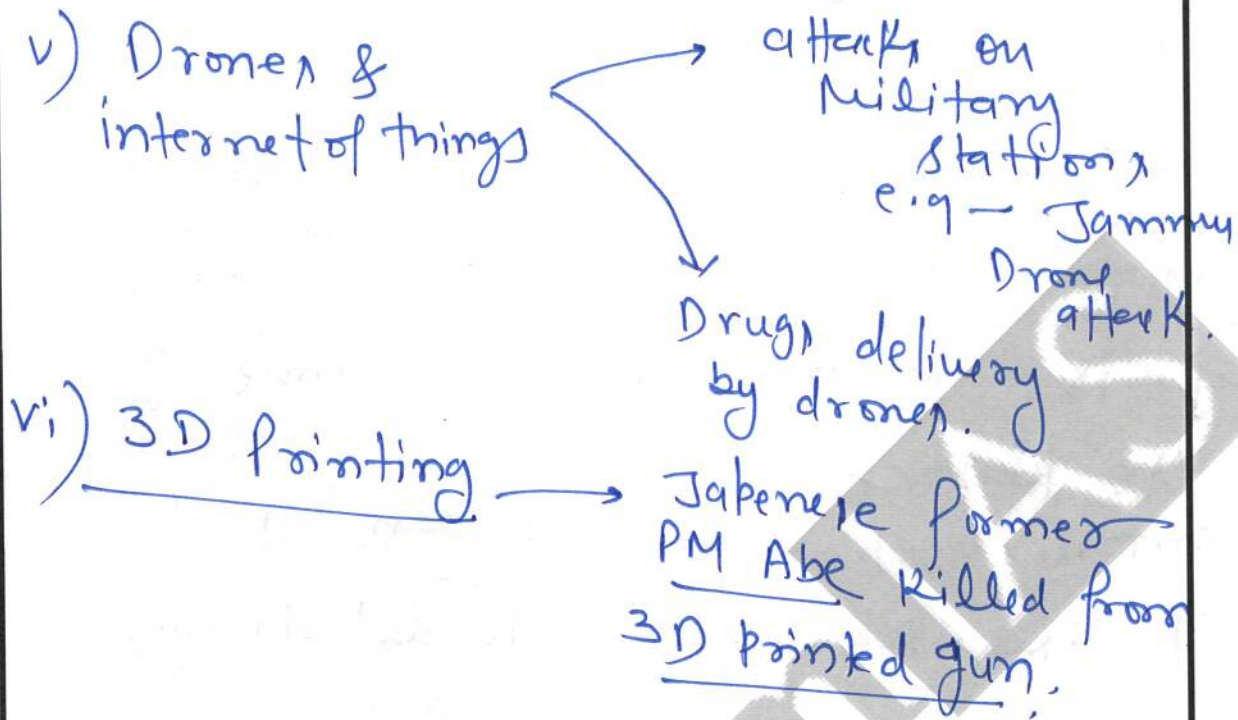 v) Drones &
internet of things
attacks on
Military
stations
e.g - Jammu
Drone
attack.
Drugs delivery
by drones.
vi) 3D Printing
Japenese former
PM Abe killed from
3D printed gun.
IAS